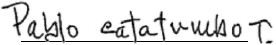 Pablo catatumbo T.